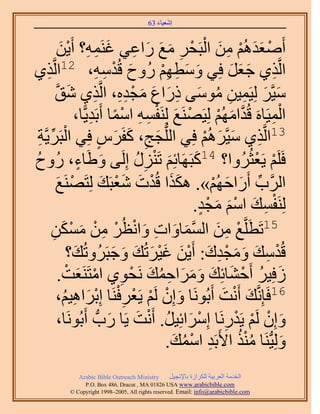 إشعياء 63
أَصْعَدَهُمْ مِنَ الْبَحْرِ مَعَ رَاعِي غَنَمِهِ؟ أَيْنَ
الَّذِي جَعَلَ فِي وَسَطِهِمْ رُوحَ قُدْسِهِ، 12الَّذِي
سَيَّرَ لِيَمِينِ مُوسَى ذِرَاعَ مَجْدِهِ، الَّذِي شَقَّ
الْمِيَاهَ قُدَّامَهُمْ لِيَصْنَعَ لِنَفْسِهِ اسْمًا أَبَدِيًّا،
13الَّذِي سَيَّرَهُمْ فِي اللُّجَجِ، كَفَرَسٍ فِي الْبَرِّيَّةِ
فَلَمْ يَعْثُرُوا؟ 14كَبَهَائِمَ تَنْزِلُ إِلَى وَطَاءٍ، رُوحُ
الرَّبِّ أَرَاحَهُمْ». هكَذَا قُدْتَ شَعْبَكَ لِتَصْنَعَ
لِنَفْسِكَ اسْمَ مَجْدٍ.
15تَطَلَّعْ مِنَ السَّمَاوَاتِ وَانْظُرْ مِنْ مَسْكَنِ
قُدْسِكَ وَمَجْدِكَ: أَيْنَ غَيْرَتُكَ وَجَبَرُوتُكَ؟
زَفِيرُ أَحْشَائِكَ وَمَرَاحِمُكَ نَحْوِي امْتَنَعَتْ.
16فَإِنَّكَ أَنْتَ أَبُونَا وَإِنْ لَمْ يَعْرِفْنَا إِبْرَاهِيمُ،
وَإِنْ لَمْ يَدْرِنَا إِسْرَائِيلُ. أَنْتَ يَا رَبُّ أَبُونَا،
وَلِيُّنَا مُنْذُ الأَبَدِ اسْمُكَ.
Arabic Bible Outreach Ministry الخدمة العربية للكرازة بالإنجيل
P.O. Box 486, Dracut , MA 01826 USA www.arabicbible.com
© Copyright 1998–2005, All rights reserved. Email: info@arabicbible.com